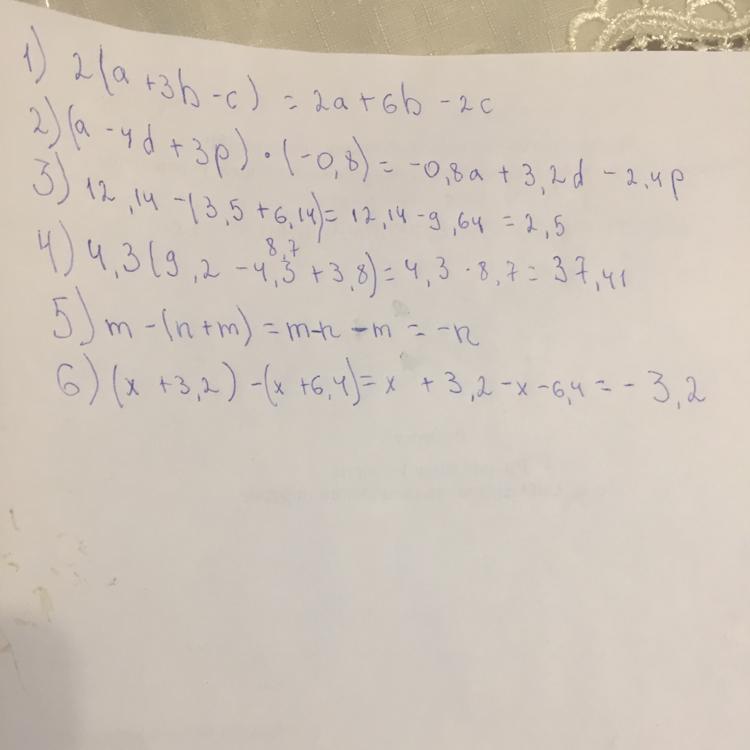 1) 2(a + 3b - c) = 2a + 6b - 2c
2) (a - 4d + 3p) · (-0,8) = -0,8a + 3,2d - 2,4p
3) 12,14 - (3,5 + 6,14) = 12,14 - 9,64 = 2,5
8,7
4) 4,3(9,2 - 4,3 + 3,8) = 4,3 · 8,7 = 37,41
5) m - (n + m) = m - n - m = -n
6) (x + 3,2) - (x + 6,4) = x + 3,2 - x - 6,4 = - 3,2